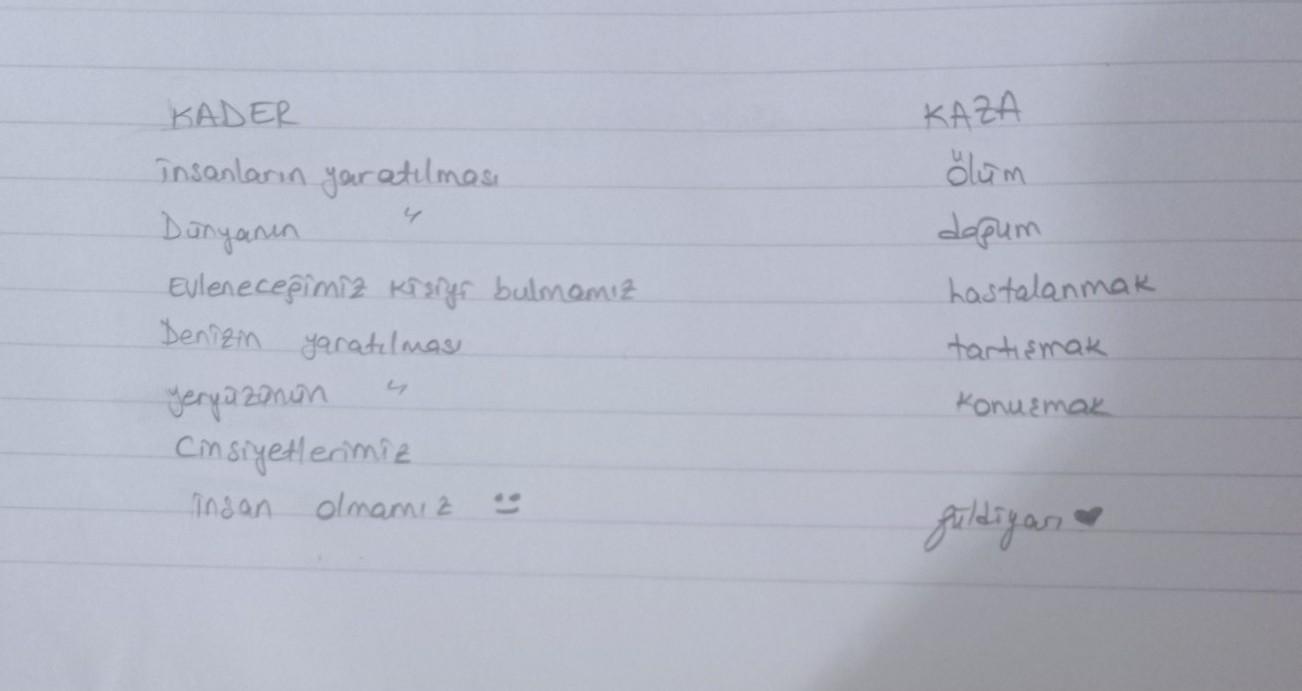 KADER
insanların yaratılması
Dünyanın "
Evleneceğimiz kişiyi bulmamız
Denizin yaratılması
yeryüzünün "
Cinsiyetlerimiz
insan olmamız
KAZA
ölüm
doğum
hastalanmak
tartışmak
konuşmak
güldiyarı